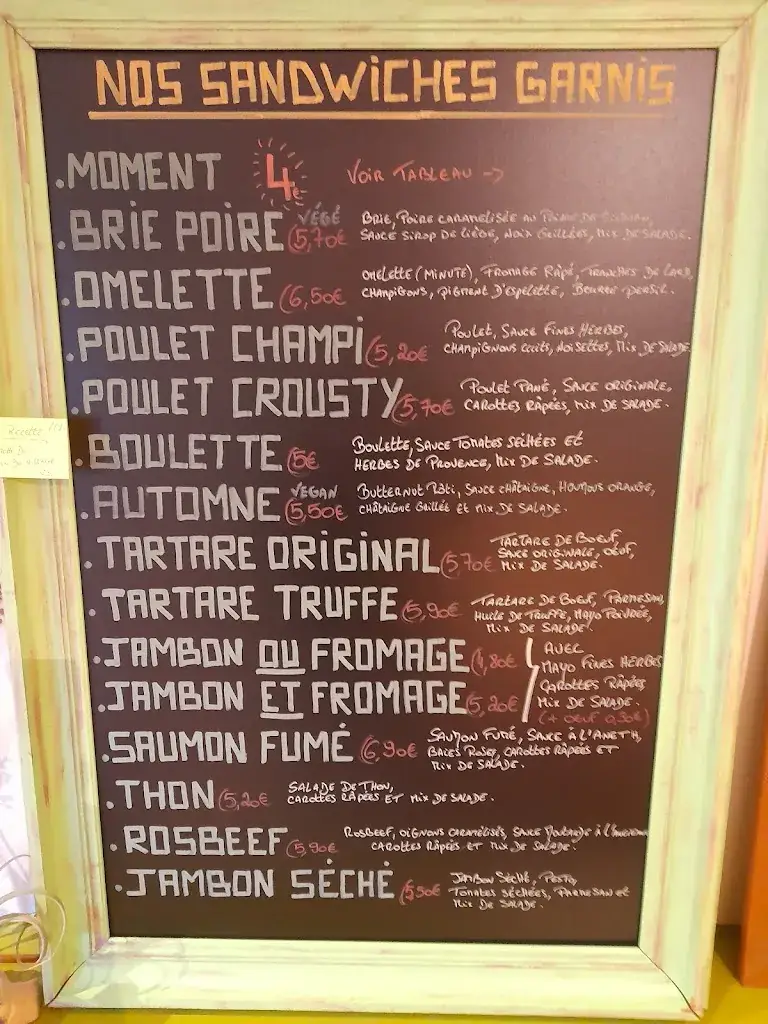 NOS SANDWICHES GARNIS
.MOMENT 4€ VOIR TABLEAU ->
.BRIE POIRE VÉGÉ (5,70€ BRIE, POIRE CARAMELISÉE AU
SAUCE SIROP DE LIÈGE, NOIX GRILLÉES, MIX DE SALADE.
.OMELETTE (6,50€ OMELETTE (MINUTE), FROMAGE RÂPÉ, TRANCHES DE LARD,
CHAMPIGNONS, PIGMENT D'ESPELETTE, BEURRE PERSIL.
.POULET CHAMPI (5,20€ POULET, SAUCE FINES HERBES,
CHAMPIGNONS CUITS, NOISETTES, MIX DE SALADE.
.POULET CROUSTY (5,70€ POULET PANÉ, SAUCE ORIGINALE,
CAROTTES RÂPÉES, MIX DE SALADE.
.BOULETTE (5€ BOULETTE, SAUCE TOMATES SÉCHÉES ET
HERBES DE PROVENCE, MIX DE SALADE.
.AUTOMNE VEGAN (5,50€ BUTTERNUT RÔTI, SAUCE CHÂTAIGNE, HOUMOUS ORANGE,
CHÂTAIGNE GRILLÉE ET MIX DE SALADE.
.TARTARE ORIGINAL (5,70€ TARTARE DE BOEUF,
SAUCE ORIGINALE, OEUF,
MIX DE SALADE.
.TARTARE TRUFFE (5,90€ TARTARE DE BOEUF, PARMESAN,
HUILE DE TRUFFE, MAYO POIVRÉE,
MIX DE SALADE.
.JAMBON OU FROMAGE (4,80€ AVEC
MAYO FINES HERBES
.JAMBON ET FROMAGE (5,20€ CAROTTES RÂPÉES
MIX DE SALADE.
(+ OEUF 0,30€)
.SAUMON FUMÉ (6,90€ SAUMON FUMÉ, SAUCE À L'ANETH,
BAIES ROSES, CAROTTES RÂPÉES ET
MIX DE SALADE.
.THON (5,20€ SALADE DE THON,
CAROTTES RÂPÉES ET MIX DE SALADE.
.ROSBEEF (5,90€ ROSBEEF, OIGNONS CARAMÉLISÉS, SAUCE MOUTARDE À
CAROTTES RÂPÉES ET MIX DE SALADE.
.JAMBON SÉCHÉ (5,50€ JAMBON SÉCHÉ, PESTO,
TOMATES SÉCHÉES, PARMESAN ET
MIX DE SALADE.